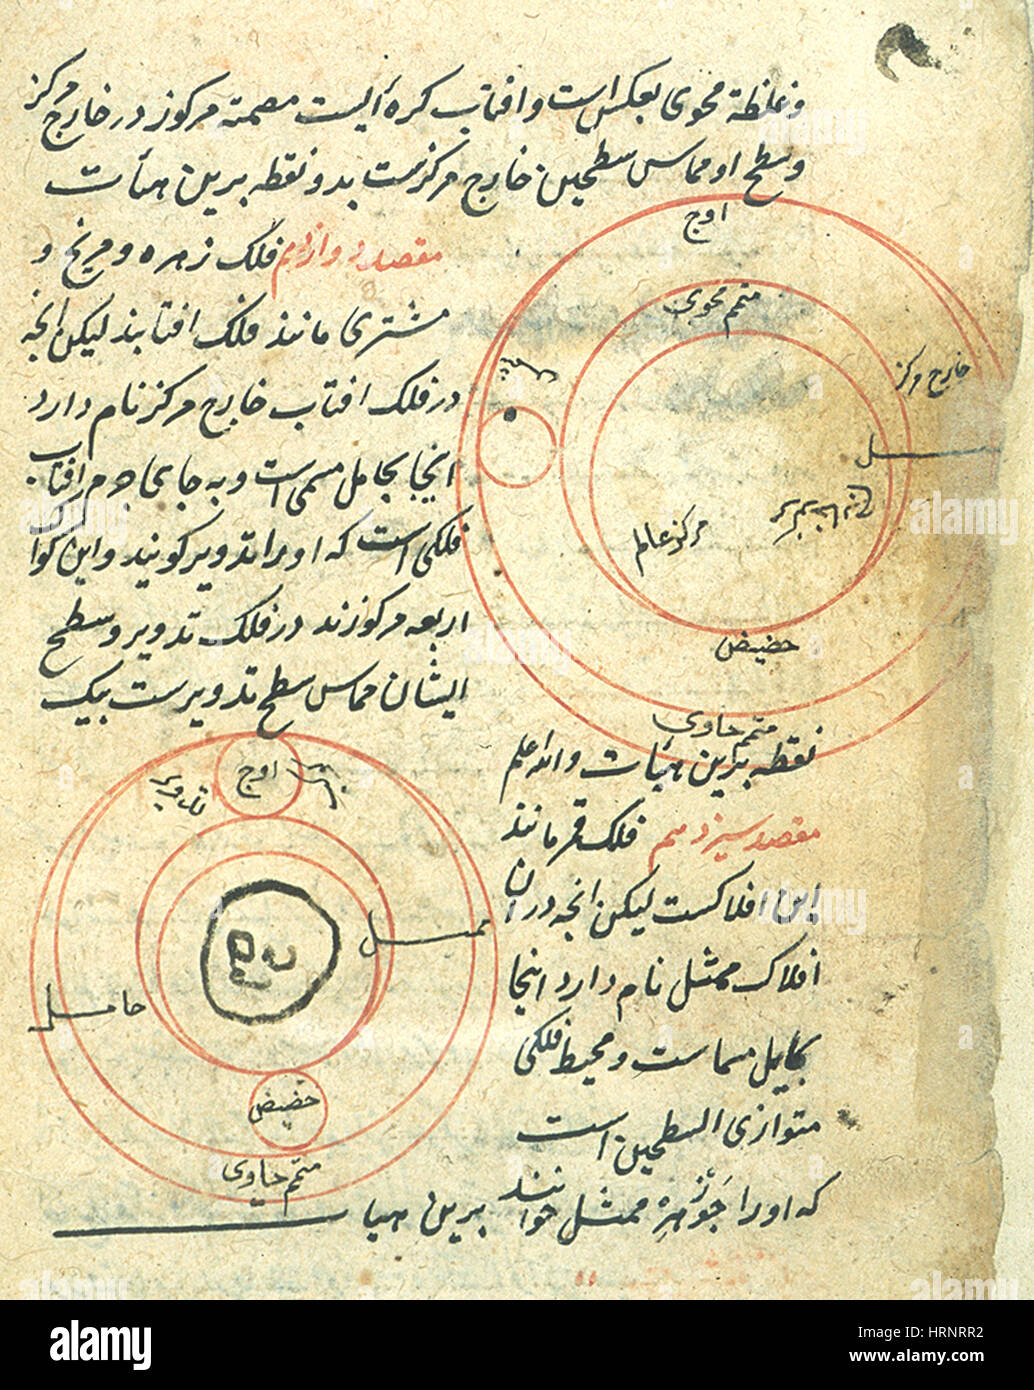 و غلظة محوی بعکس است و افتاب کره ایست مصمته مرکوز در خارج مرکز
و سطح او مماس سطحین خارج مرکزست بدو نقطه برین هیأت
مقصد دوازدهم فلک زهره و مریخ و
مشتری مانند فلک افتابند لیکن انچه
در فلک افتاب خارج مرکز نام دارد
اینجا بحامل مسمی است و به جای جرم افتاب
فلکی است که او را تدویر کویند و این کوا
اربعه مرکوزند در فلک تدویر و سطح
ایشان مماس سطح تدویرست بیک
نقطه برین هیأت والله اعلم
مقصد سیزدهم فلک قمر مانند
این افلاکست لیکن انچه در ان
افلاک ممثل نام دارد اینجا
بمایل مسماست و محیط فلکی
متوازی السطحین است
که او را جوزهر ممثل خوانند برین هیا
اوج
متمم محوی
خارج مرکز
مرکز عالم
حضیض
متمم حاوی
اوج
تدویر
حامل
حضیض
متمم حاوی
alamy
Image ID: HRNRR2
www.alamy.com